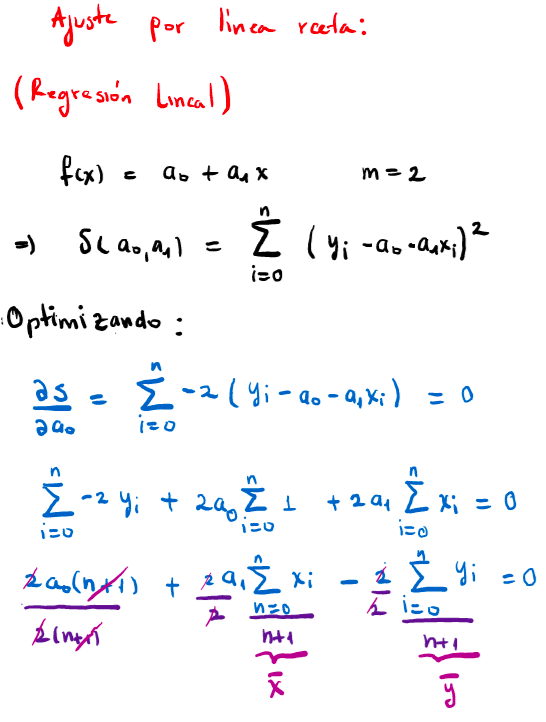 Ajuste por línea recta:
(Regresión Lineal)
f(x) = a₀ + a₁x m = 2
⇒ S(a₀,a₁) = ∑_{i=0}^{n} (yᵢ - a₀ - a₁xᵢ)²
Optimizando:
∂S/∂a₀ = ∑_{i=0}^{n} -2(yᵢ - a₀ - a₁xᵢ) = 0
∑_{i=0}^{n} -2yᵢ + 2a₀ ∑_{i=0}^{n} 1 + 2a₁ ∑_{i=0}^{n} xᵢ = 0
2a₀(n+1)/2(n+1) + 2/2 a₁ ∑_{n=0}^{n} xᵢ/(n+1) - 2/2 ∑_{i=0}^{n} yᵢ/(n+1) = 0
x̄ ȳ